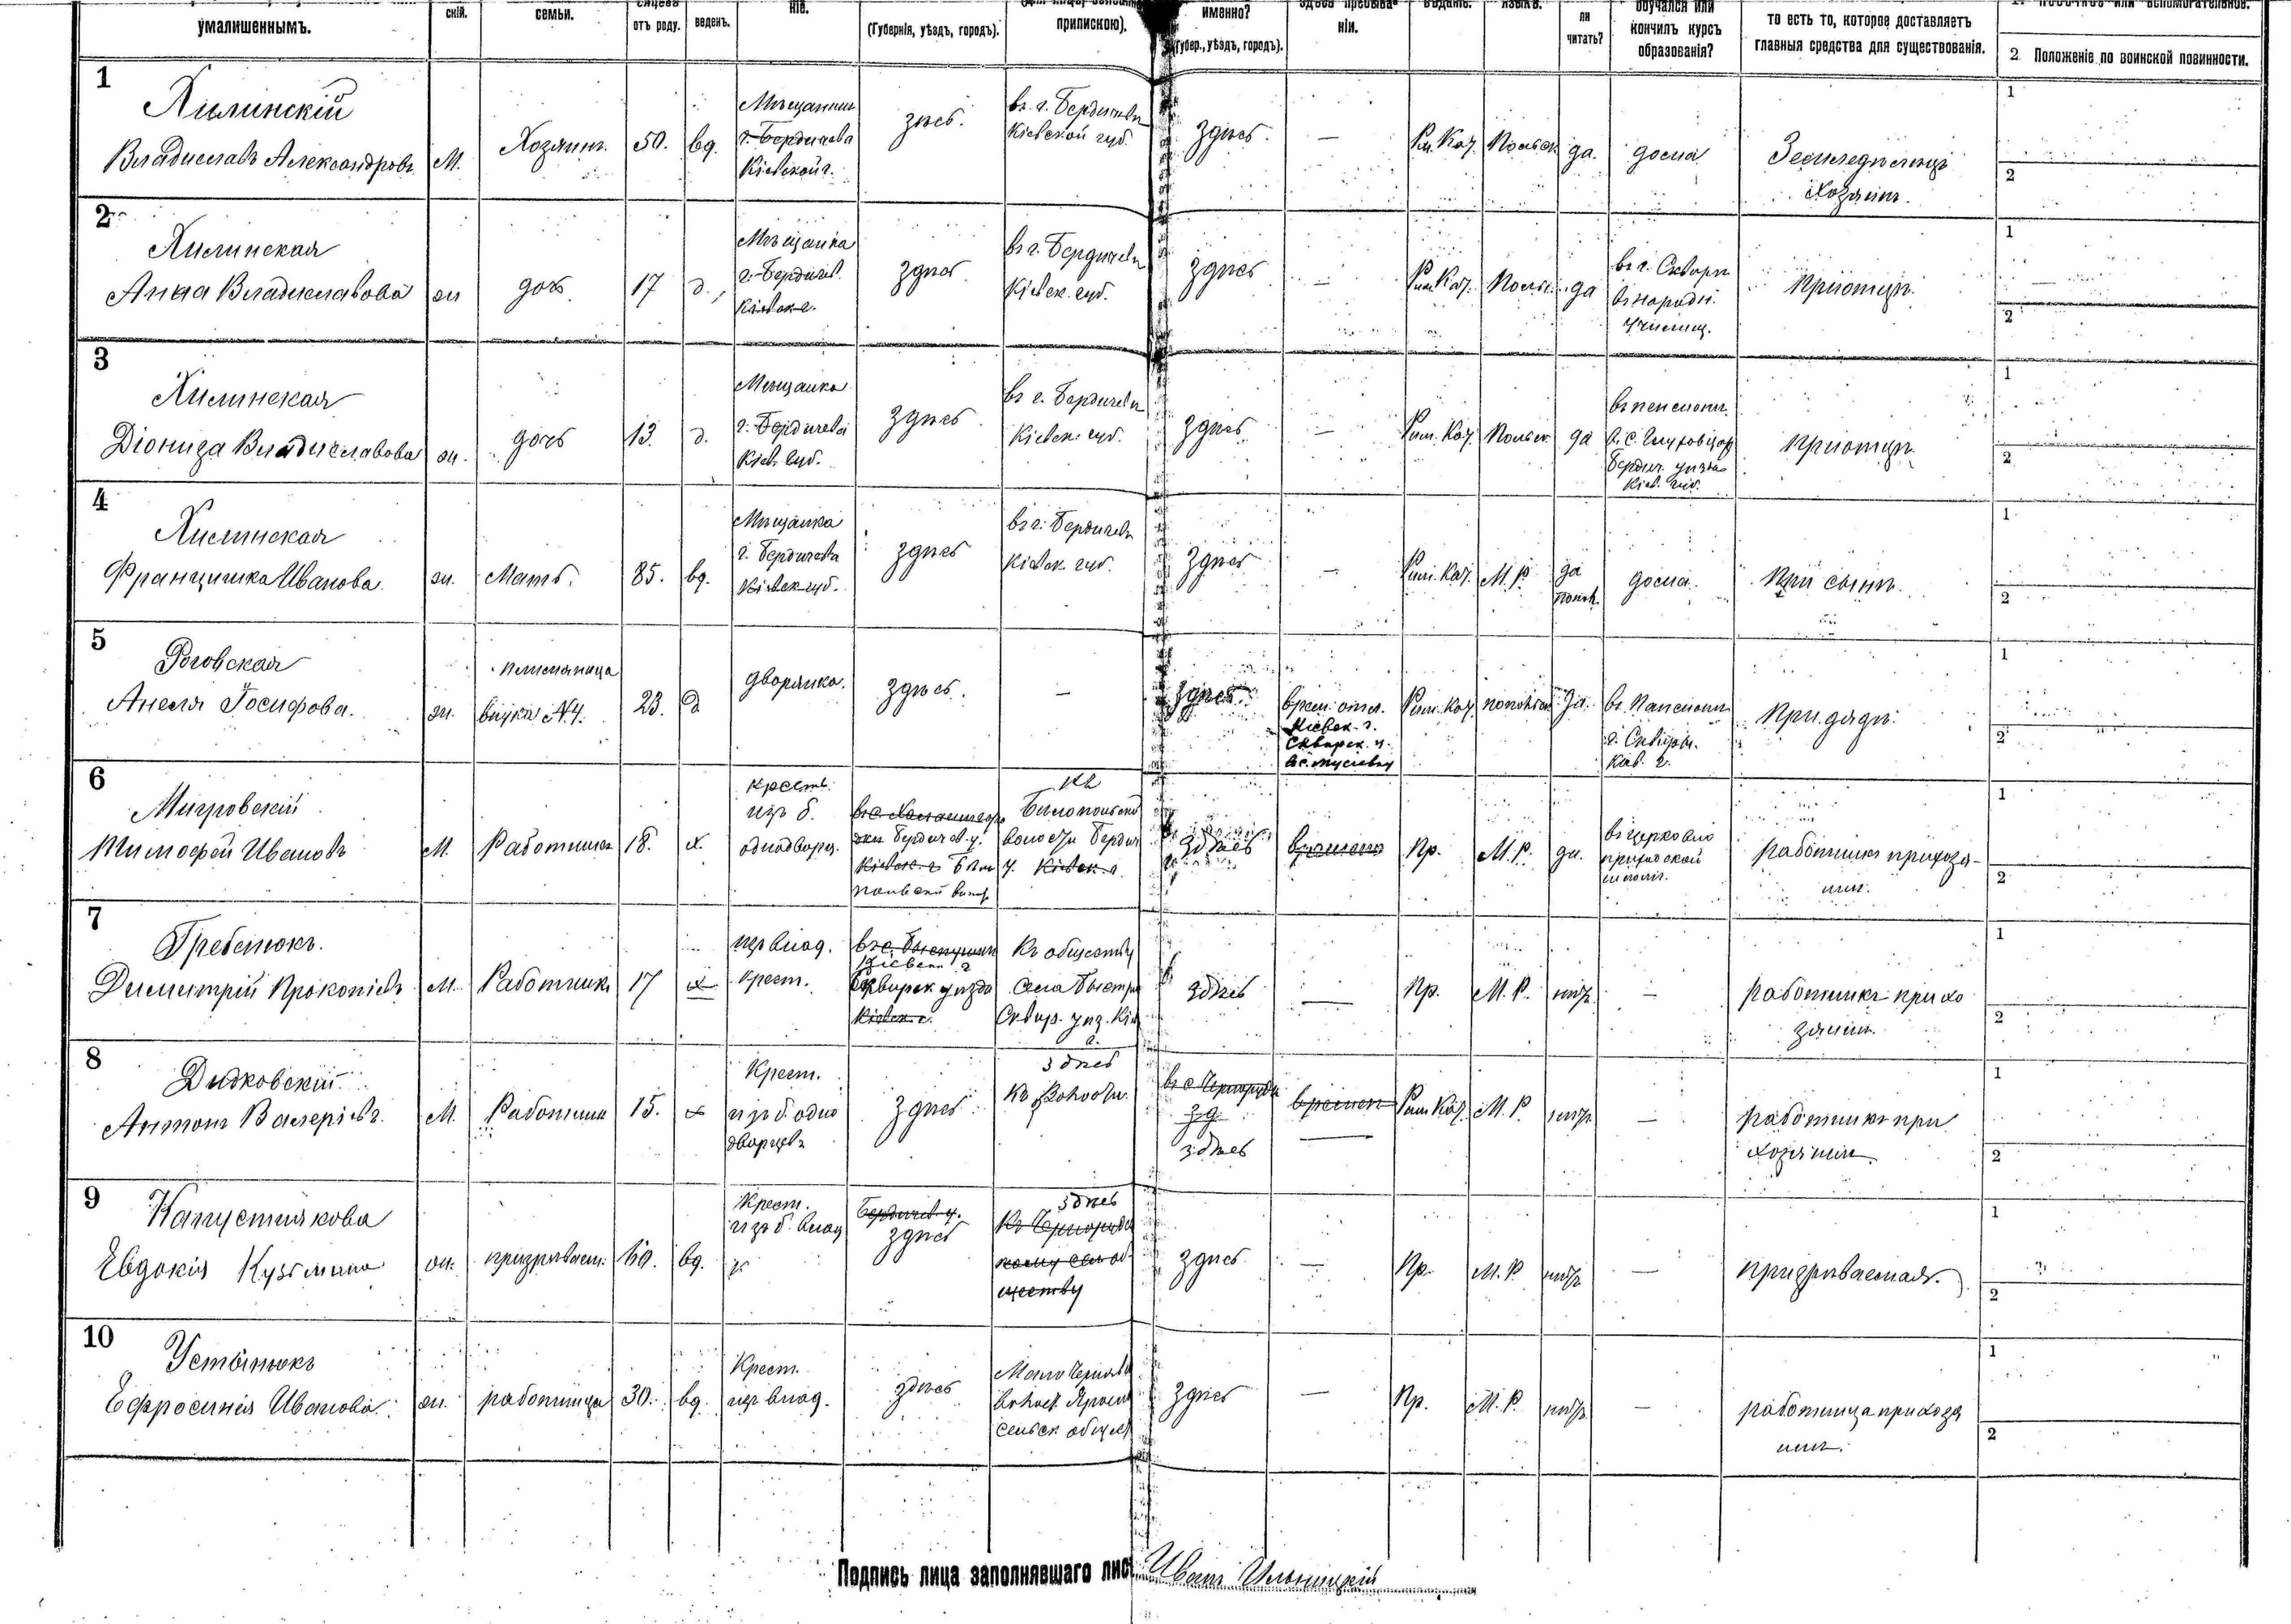 умалишеннымъ.
скій.
семьи.
отъ роду.
веденъ.
ніе.
(Губернія, уѣздъ, городъ).
припискою).
именно?
(Губер., уѣздъ, городъ).
ніи.
ли
читать?
обучался или
кончилъ курсъ
образованія?
то есть то, которое доставляетъ
главныя средства для существованія.
2 Положеніе по воинской повинности.
1
Хилинскій
Владиславъ Александровъ
М.
Хозяинъ.
50.
вд.
Мѣщанинъ
г. Бердичева
Кіевской г.
здѣсь.
въ г. Бердичевѣ
Кіевской губ.
здѣсь.
—
Рим. Кат.
Польск
да.
дома
Земледѣлецъ
Хозяинъ.
1
2
2
Хилинская
Анна Владиславова
ж
дочь
17
д.
Мѣщанка
г. Бердичев.
Кіевск. г.
здѣсь
въ г. Бердичевѣ
Кіевск. губ.
здѣсь
—
Рим. Кат.
Польс.
да
въ г. Сквирѣ
въ народн.
училищ.
При отцѣ
1
2
3
Хилинская
Діониза Владиславова
ж.
дочь
13.
д.
Мѣщанка
г. Бердичева
Кіев. губ.
здѣсь
въ г. Бердичевѣ
Кіевск. губ.
здѣсь
—
Рим. Кат.
Польск.
да
въ пенсіонѣ
Бердич. уѣзда
Кіев. губ.
При отцѣ
1
2
4
Хилинская
Францишка Иванова
ж.
Мать.
85.
вд.
Мѣщанка
г. Бердичева
Кіевск. губ.
здѣсь
въ г. Бердичевѣ
Кіевск. губ.
здѣсь
—
Рим. Кат.
М. Р.
да
польск.
дома.
При сынѣ.
1
2
5
Роговская
Анеля Іосифова.
ж.
племяница
внука №4.
23.
д
дворянка.
здѣсь.
—
здѣсь
врем. отл.
Кіевск. г.
Сквирск. у.
Рим. Кат.
польск
да.
въ Пансіонѣ
г. Сквиры.
Кіев. г.
При дядѣ
1
2
6
Мигровскій
Тимофей Ивановъ
М.
Работникъ
18.
х.
крест.
изъ б.
однодворц.
Бердичев. у.
Кіевск. г
Кіевск. г.
здѣсь
временно
Пр.
М. Р.
да.
въ церковно
приходской
школѣ.
работникъ при хозя-
инѣ.
1
2
7
Гребенюкъ.
Димитрій Прокопіевъ
М.
Работникъ
17
х
изъ влад.
крест.
Кіевск. г
Сквирск уѣзда
Кіевск. г.
Къ обществу
села Быстри
Сквир. уѣз. Кіев
г.
здѣсь
—
Пр.
М. Р.
нѣтъ.
—
работникъ при хо
зяинѣ.
1
2
8
Дидковскій
Антонъ Валеріевъ.
М.
Работникъ
15.
х
Крест.
изъ б. одно
дворцевъ
здѣсь
здѣсь
къ волости.
зд
здѣсь
времен
—
Рим Кат.
М. Р
нѣтъ
—
работникъ при
хозяинѣ
1
2
9
Капустнякова
Евдокія Кузьмина
ж.
призрѣваем.
60.
вд.
Крест.
изъ б. влад
Бердичев. у.
здѣсь
здѣсь
ществу
здѣсь
—
Пр.
М. Р.
нѣтъ
—
призрѣваемая.
1
2
10
Устынюкъ
Ефросинія Иванова.
ж.
работница
30.
вд.
Крест.
изъ влад.
здѣсь
сельск общест
здѣсь
—
Пр.
М. Р.
нѣтъ
—
работница при хозя
инѣ.
1
2
Подпись лица заполнявшаго лис
Иванъ Ильницкій